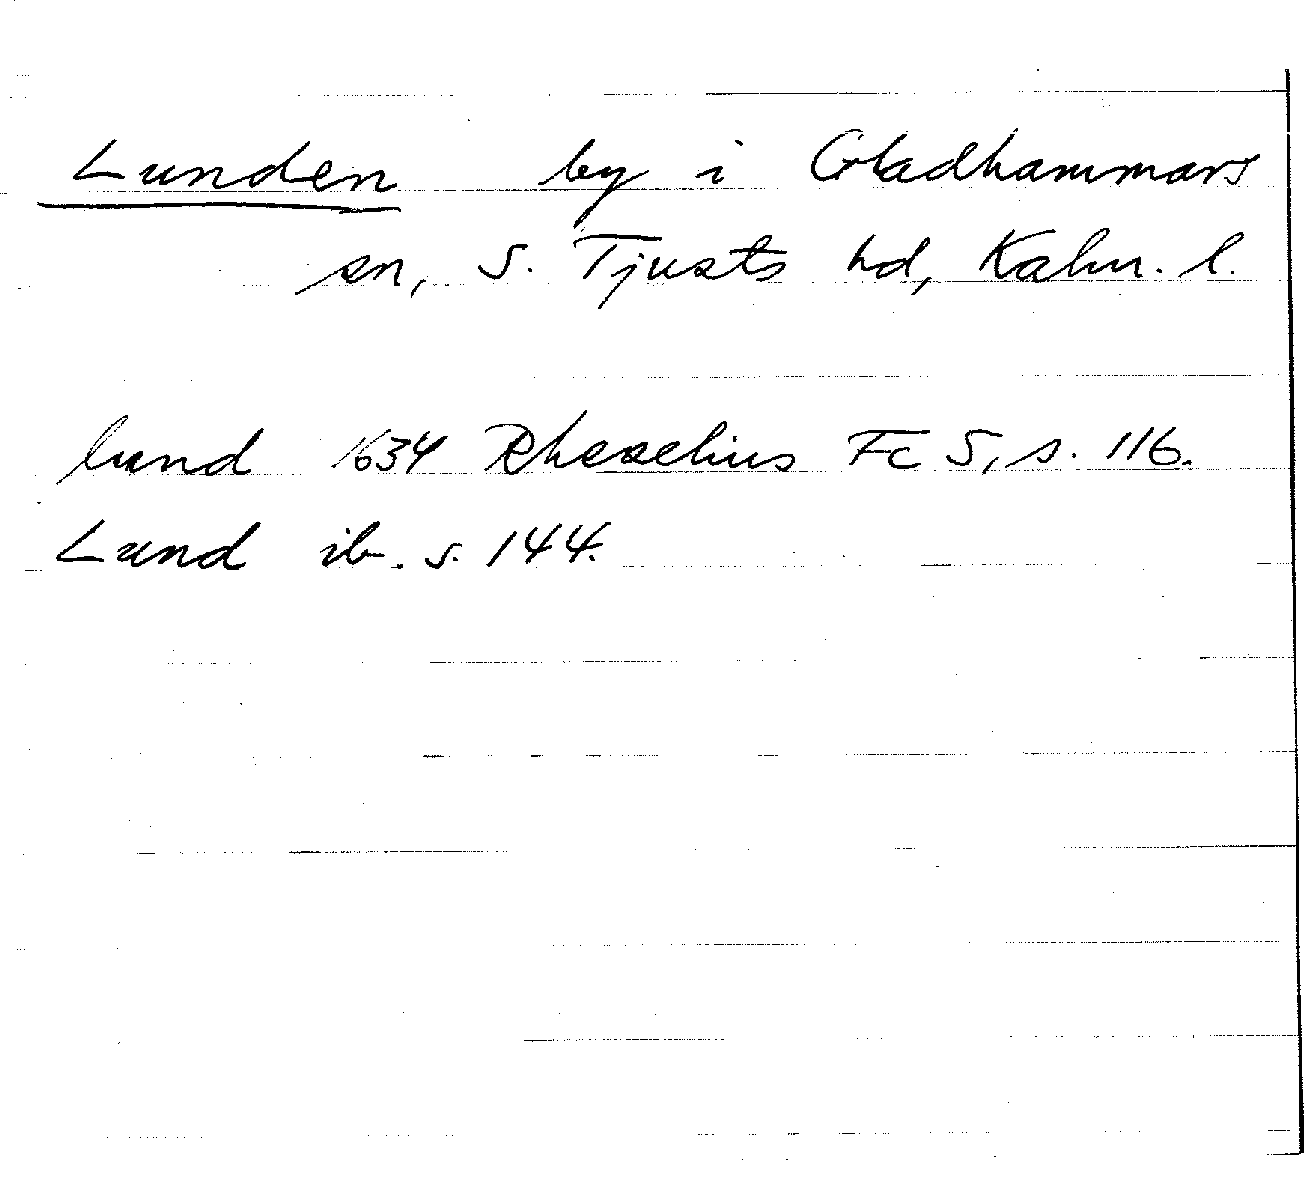 Lunden by i Gladhammars
sn, S. Tjusts hd, Kalm. l.
lund 1634 Rhezelius Fc 5, s. 116.
Lund ib. s. 144.